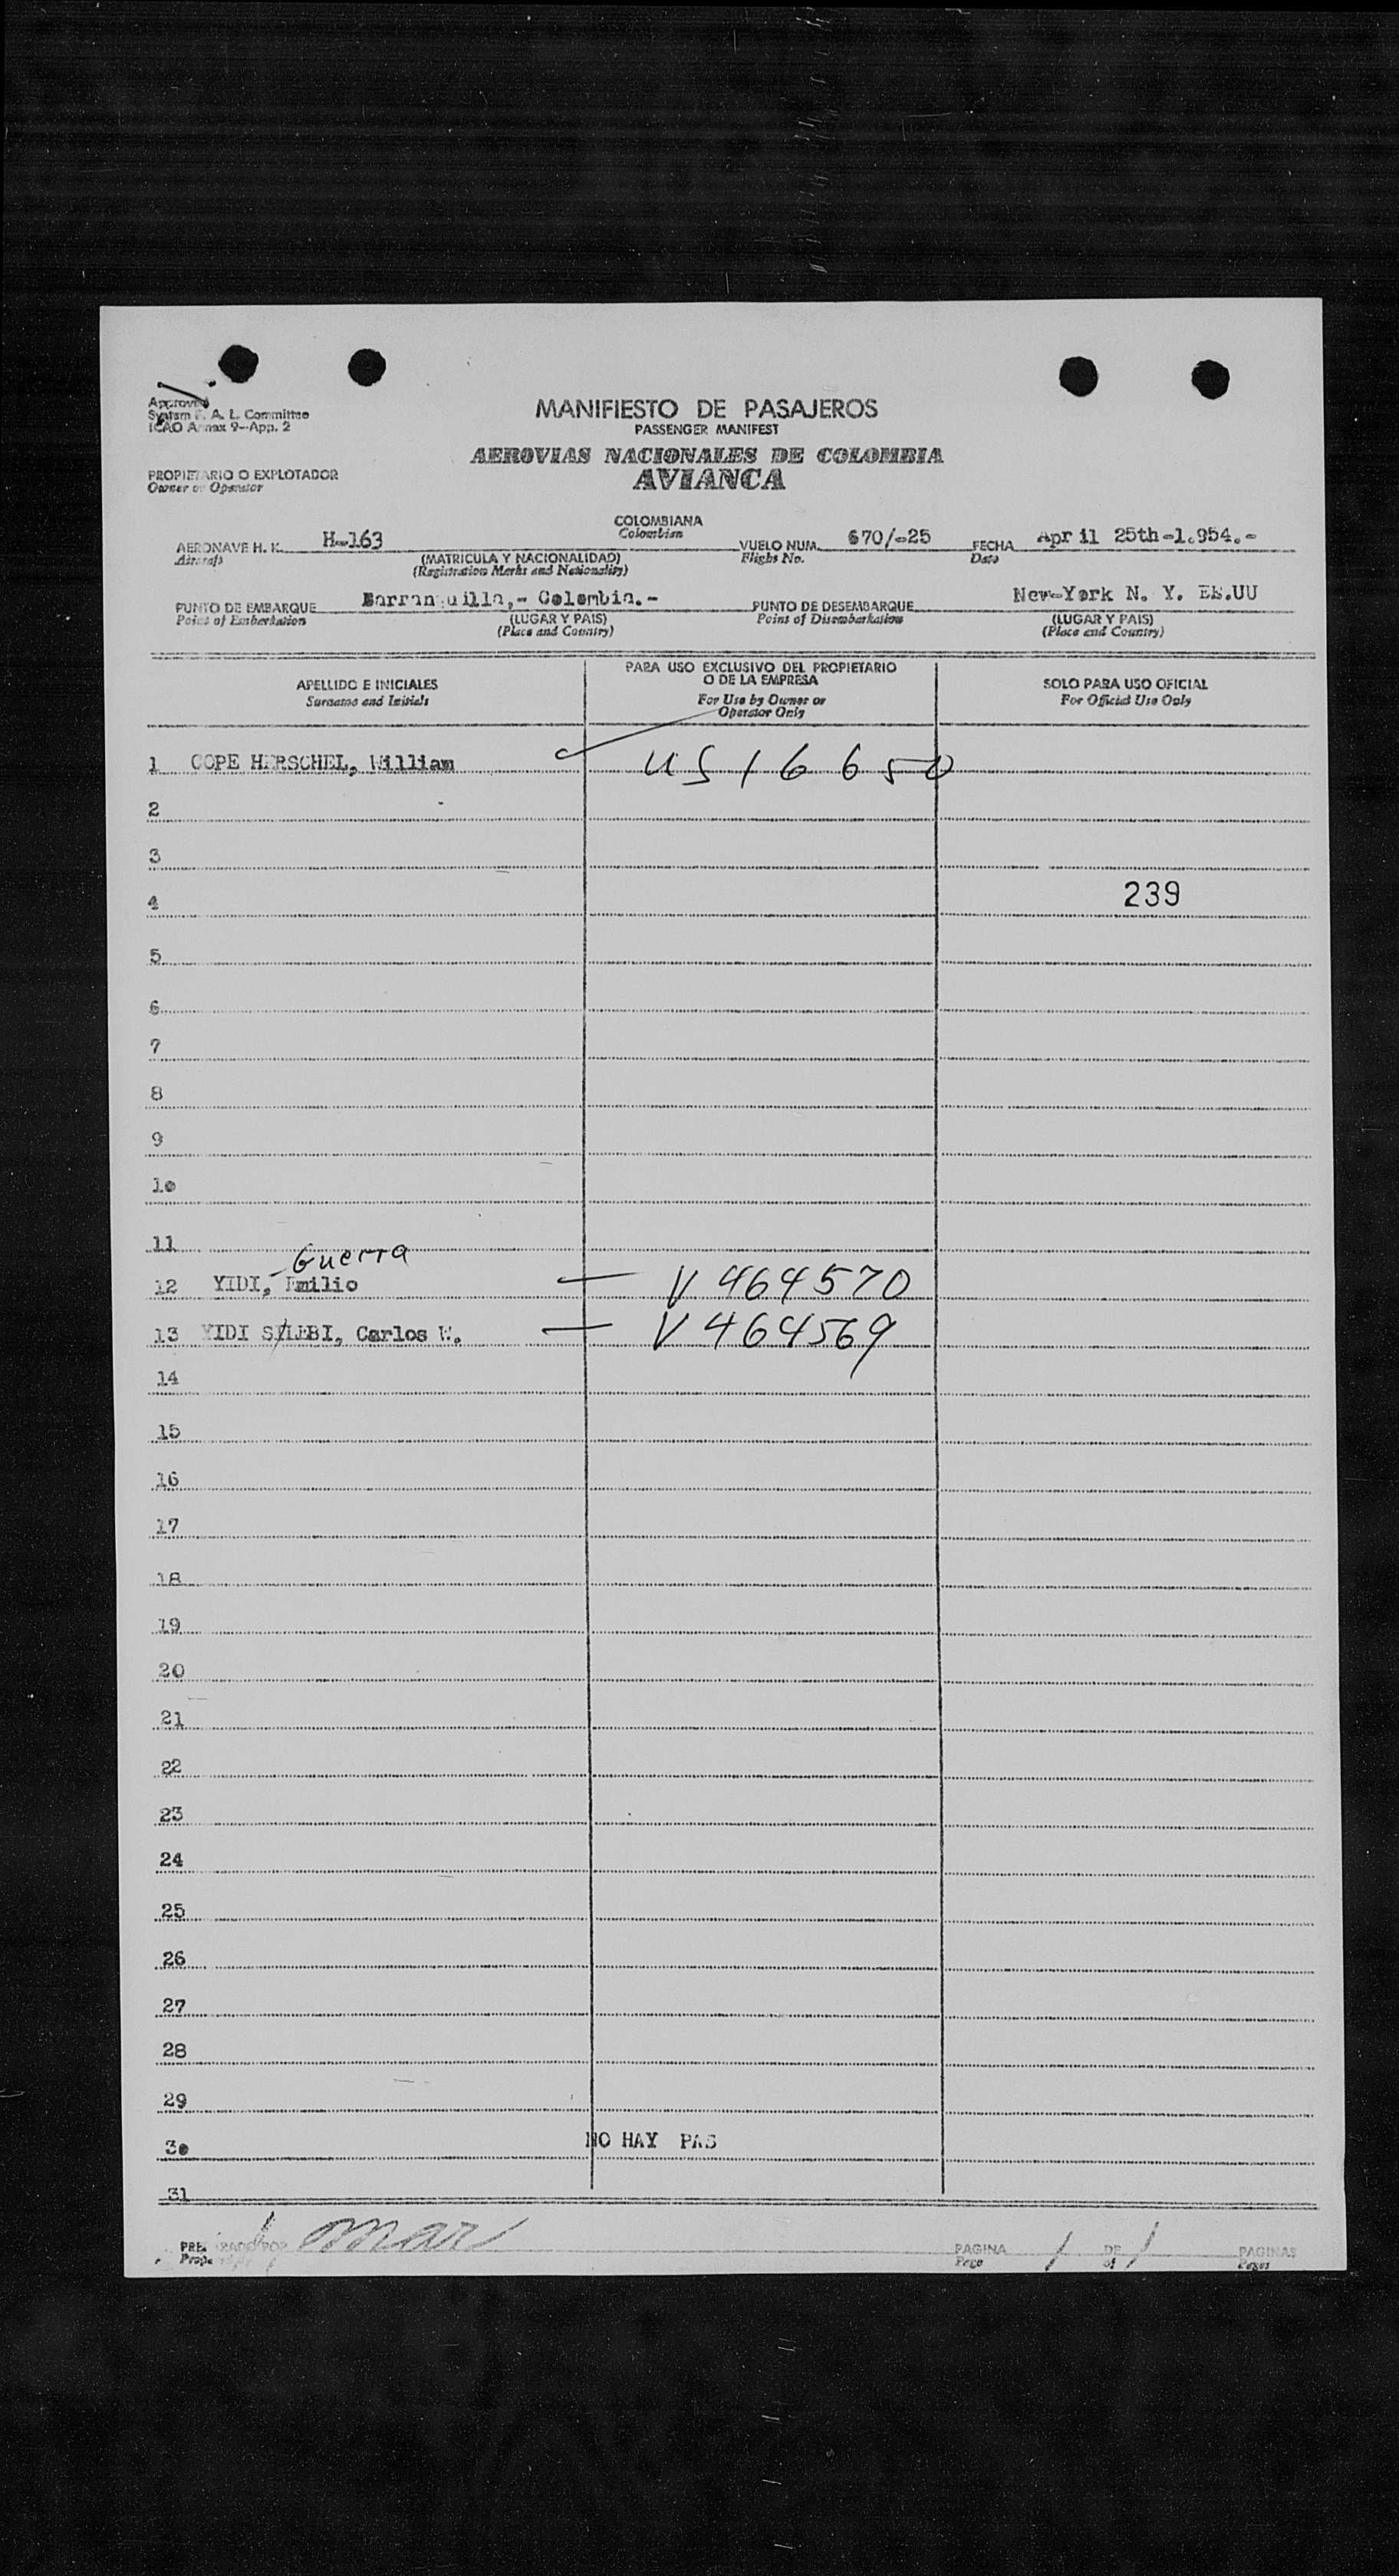 Approved
System F. A. L. Committee
ICAO Annex 9-App. 2
MANIFIESTO DE PASAJEROS
PASSENGER MANIFEST
AEROVIAS NACIONALES DE COLOMBIA
AVIANCA
PROPIETARIO O EXPLOTADOR
Owner or Operator
COLOMBIANA
Colombian
AERONAVE H. K. H-163 VUELO NUM. 670/-25 FECHA April 25th-1.954.-
Aircraft (MATRICULA Y NACIONALIDAD) Flight No. Date
(Registration Marks and Nationality)
PUNTO DE EMBARQUE Barranquilla,- Colombia.- PUNTO DE DESEMBARQUE New-York N. Y. EE.UU
Point of Embarkation (LUGAR Y PAIS) Point of Disembarkation (LUGAR Y PAIS)
(Place and Country) (Place and Country)
APELLIDO E INICIALES PARA USO EXCLUSIVO DEL PROPIETARIO O DE LA EMPRESA SOLO PARA USO OFICIAL
Surname and Initials For Use by Owner or Operator Only For Official Use Only
1 COPE HERSCHEL, William US 16650
2
3
4 239
5
6
7
8
9
10
11
Guerra
12 YIDI, Emilio V 464570
13 YIDI SILEBI, Carlos E. V 464569
14
15
16
17
18
19
20
21
22
23
24
25
26
27
28
29
30 NO HAY PAS
31
PREPARADO POR PAGINA 1 DE 1 PAGINAS
Prepared Page of Pages